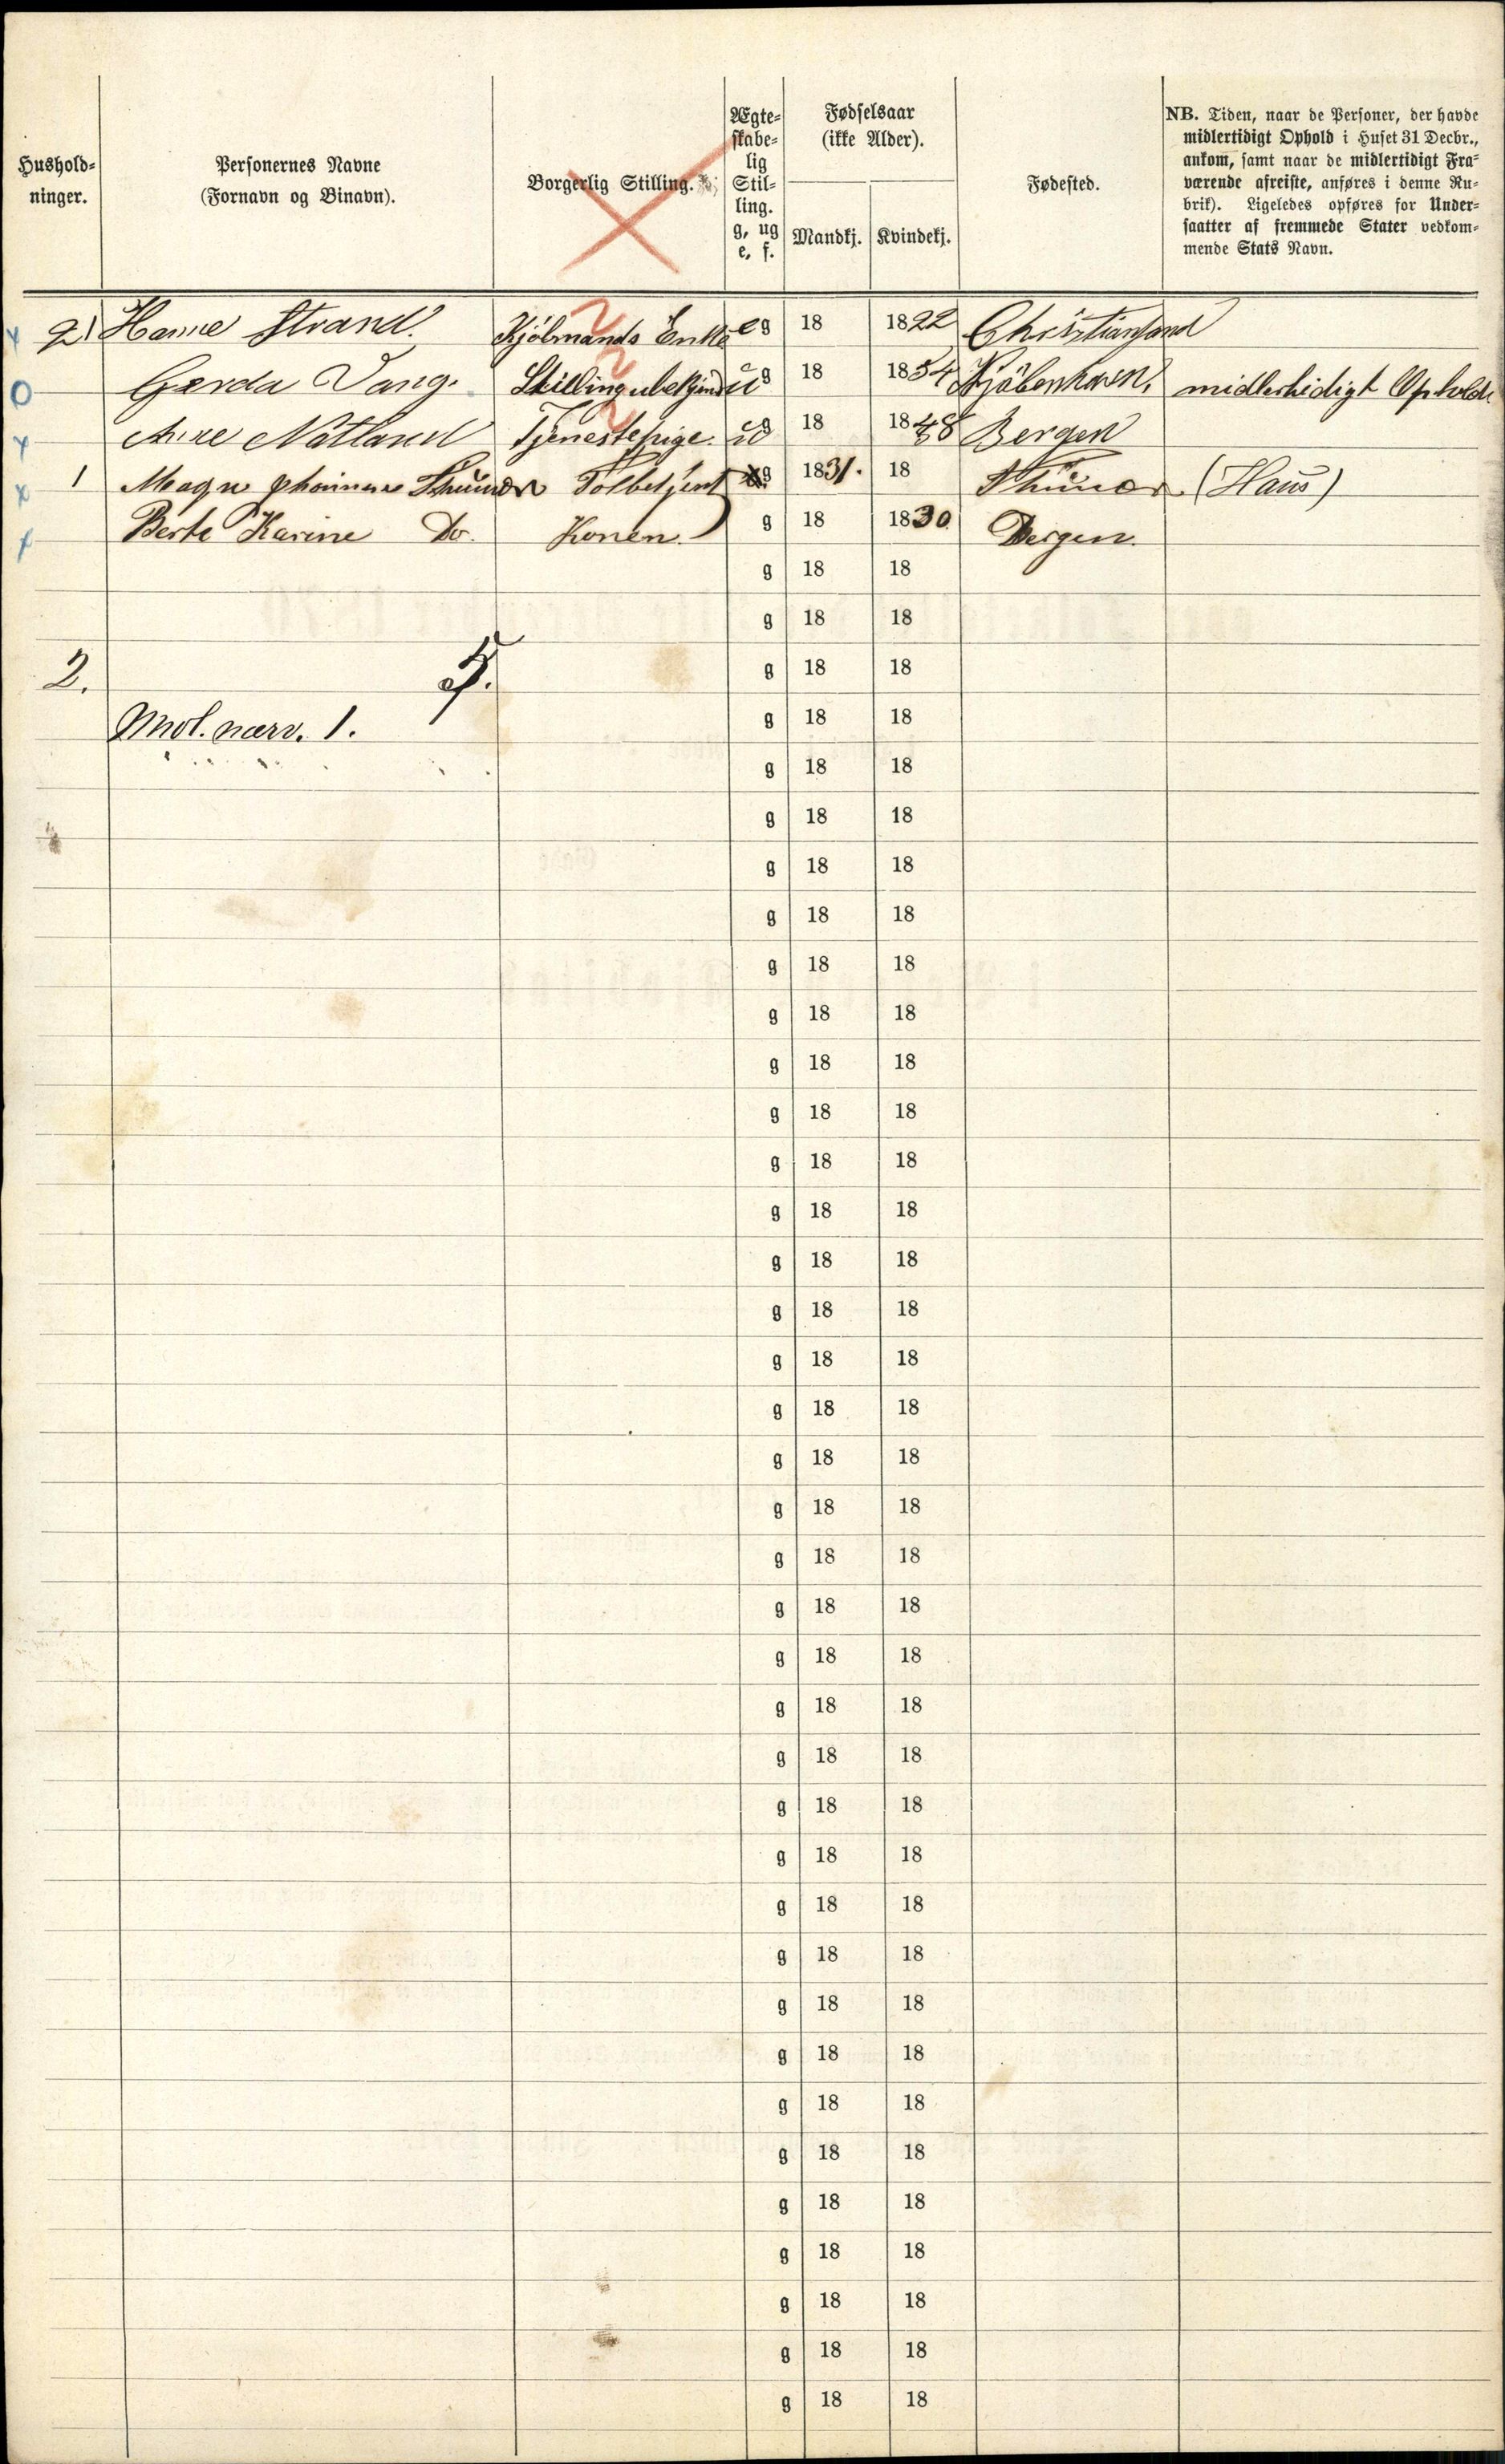 Hushold-
ninger.
Personernes Navne
(Fornavn og Binavn).
Borgerlig Stilling.
Ægte-
skabe-
lig
Stil-
ling.
g, ug
e, f.
Fødselsaar
(ikke Alder).
Mandkj. Kvindekj.
Fødested.
NB. Tiden, naar de Personer, der havde
midlertidigt Ophold i Huset 31 Decbr.,
ankom, samt naar de midlertidigt Fra-
værende afreiste, anføres i denne Ru-
brik). Ligeledes opføres for Under-
saatter af fremmede Stater vedkom-
mende Stats Navn.
Hanne Strand. Enke eg 18 1822 Christiansand
Gerda Vang. Stilling ubekjendt ug 18 1854 Kjöbenhavn, midlertidigt Ophold
Natland Tjenestepige. ug 18 1848 Bergen
1 Tolbetjent g 1831. 18 (Haus)
Berte Karine Do. Konen. g 18 1830 Bergen.
g 18 18
g 18 18
2. 5. g 18 18
Mdl. nærv. 1. g 18 18
g 18 18
g 18 18
g 18 18
g 18 18
g 18 18
g 18 18
g 18 18
g 18 18
g 18 18
g 18 18
g 18 18
g 18 18
g 18 18
g 18 18
g 18 18
g 18 18
g 18 18
g 18 18
g 18 18
g 18 18
g 18 18
g 18 18
g 18 18
g 18 18
g 18 18
g 18 18
g 18 18
g 18 18
g 18 18
g 18 18
g 18 18
g 18 18
g 18 18
g 18 18